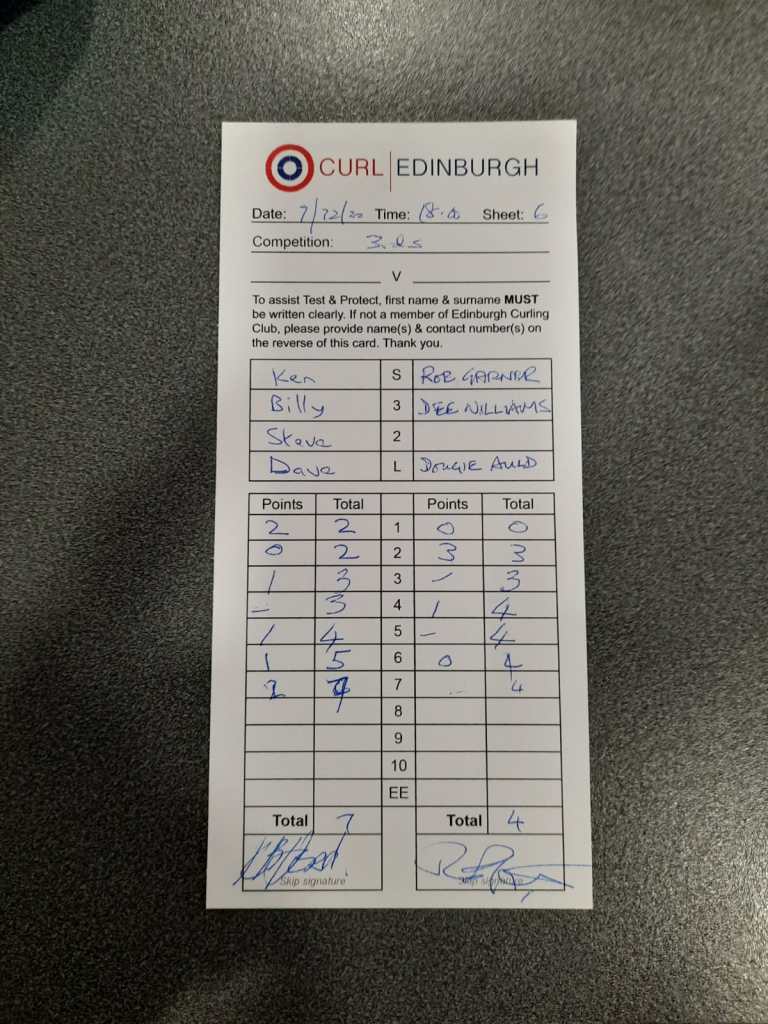 CURL EDINBURGH
Date: 7/12/20 Time: 18.00 Sheet: 6
Competition: 3.ds
V
To assist Test & Protect, first name & surname MUST
be written clearly. If not a member of Edinburgh Curling
Club, please provide name(s) & contact number(s) on
the reverse of this card. Thank you.
Ken S ROB GARNER
Billy 3 DEE WILLIAMS
Steve 2
Dave L DOUGIE AULD
Points Total Points Total
2 2 1 0 0
0 2 2 3 3
1 3 3 – 3
– 3 4 1 4
1 4 5 – 4
1 5 6 0 4
2 7 7 – 4
8
9
10
EE
Total 7 Total 4
Skip signature Skip signature